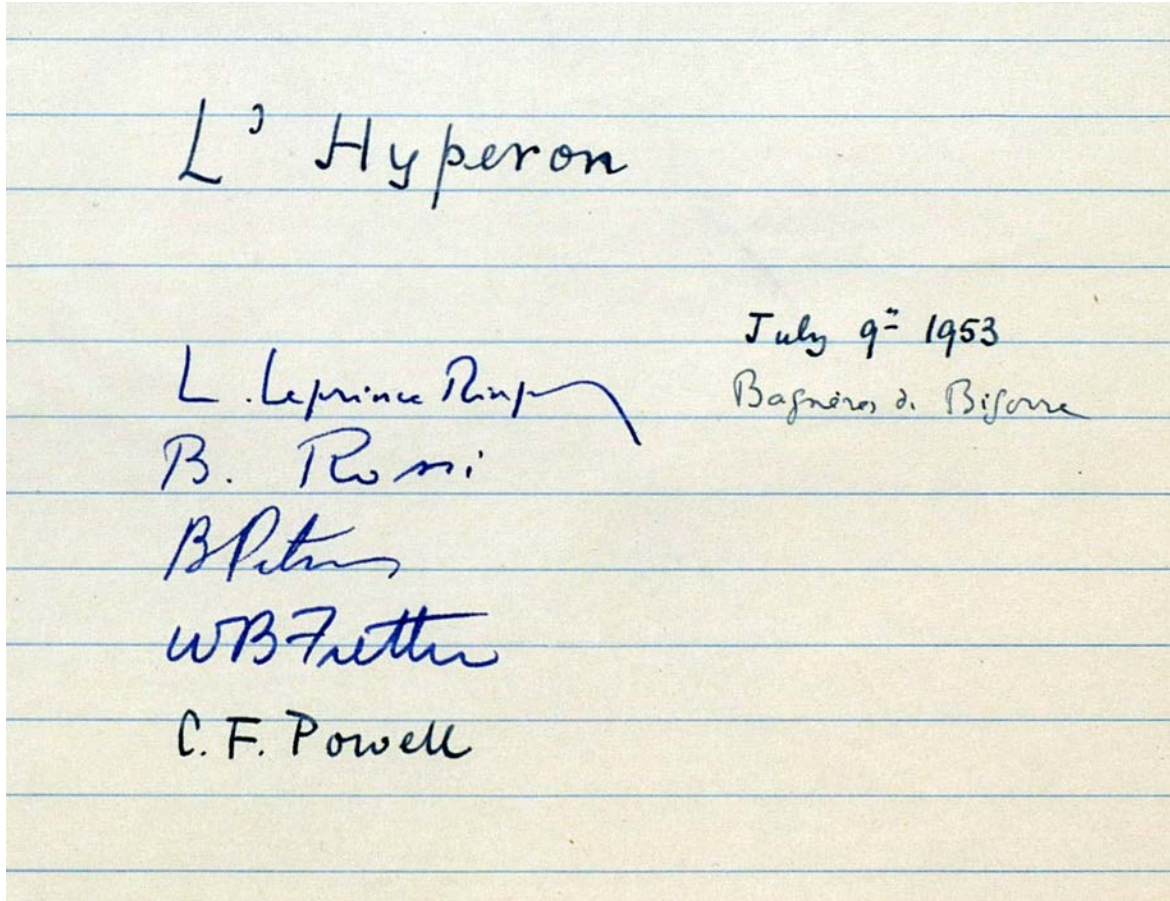 L' Hyperon
July 9th 1953
Bagnères de Bigorre
L. Leprince Ringuet
B. Rossi
B Peters
W B Fretter
C. F. Powell